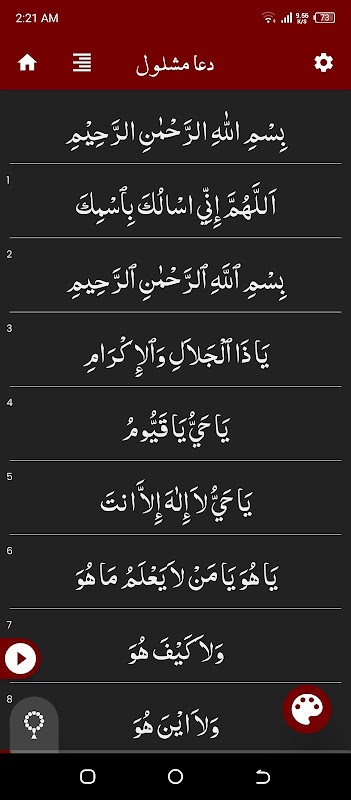 2:21 AM 9.56 K/S 73
دعا مشلول
بِسْمِ اللهِ الرَّحْمٰنِ الرَّحِيْمِ
1
اَللَّهُمَّ إِنِّي اسْالُكَ بِٱسْمِكَ
2
بِسْمِ ٱللَّهِ ٱلرَّحْمٰنِ ٱلرَّحِيمِ
3
يَا ذَا ٱلْجَلَالِ وَٱلإِكْرَامِ
4
يَا حَيُّ يَا قَيُّومُ
5
يَا حَيُّ لاَ إِلٰهَ إِلاَّ انتَ
6
يَا هُوَ يَا مَنْ لاَ يَعْلَمُ مَا هُوَ
7
وَلاَ كَيْفَ هُوَ
8
وَلاَ ايْنَ هُوَ